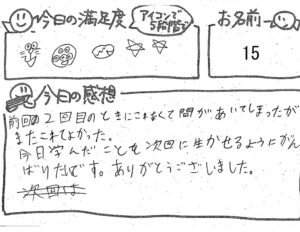 今日の満足度
アイコンで
5段階で
お名前
15
今日の感想
前回の2回目のときにこれなくて間があいてしまったが
またこれてよかった。
今日学んだことを次回に生かせるようにがん
ばりたいです。ありがとうございました。
次回は